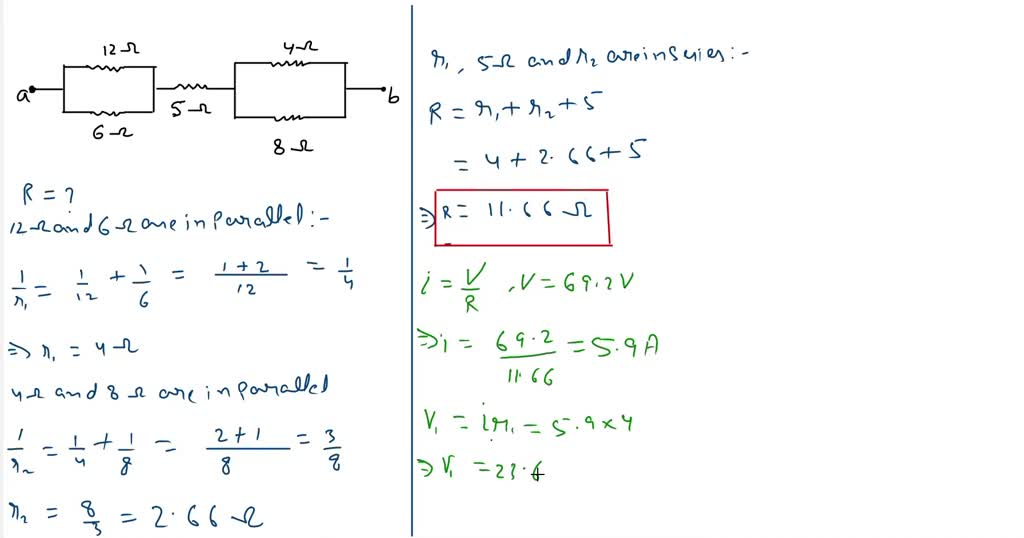 12Ω
4Ω
a
b
5Ω
6Ω
8Ω
R = ?
12Ω and 6Ω are in Parallel :-
1/r₁ = 1/12 + 1/6 = (1+2)/12 = 1/4
⇒ r₁ = 4Ω
4Ω and 8Ω are in parallel
1/r₂ = 1/4 + 1/8 = (2+1)/8 = 3/8
r₂ = 8/3 = 2.66Ω
r₁, 5Ω and r₂ are in Series :-
R = r₁ + r₂ + 5
= 4 + 2.66 + 5
⇒ R = 11.66Ω
i = V/R , V = 69.2V
⇒ i = 69.2/11.66 = 5.9A
V₁ = ir₁ = 5.9 × 4
⇒ V₁ = 23.6